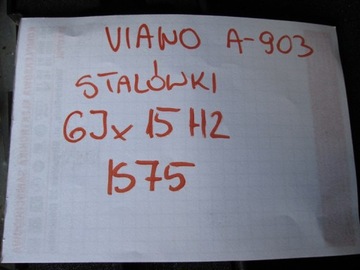 VIANO A-903
STALÓWKI
6Jx15H2
1575